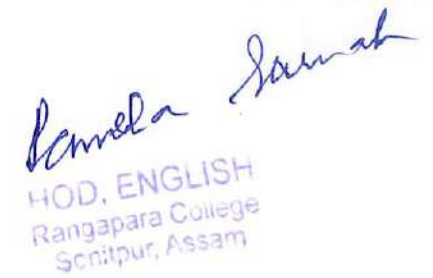 Pamela Sarmah
HOD, ENGLISH
Rangapara College
Sonitpur, Assam